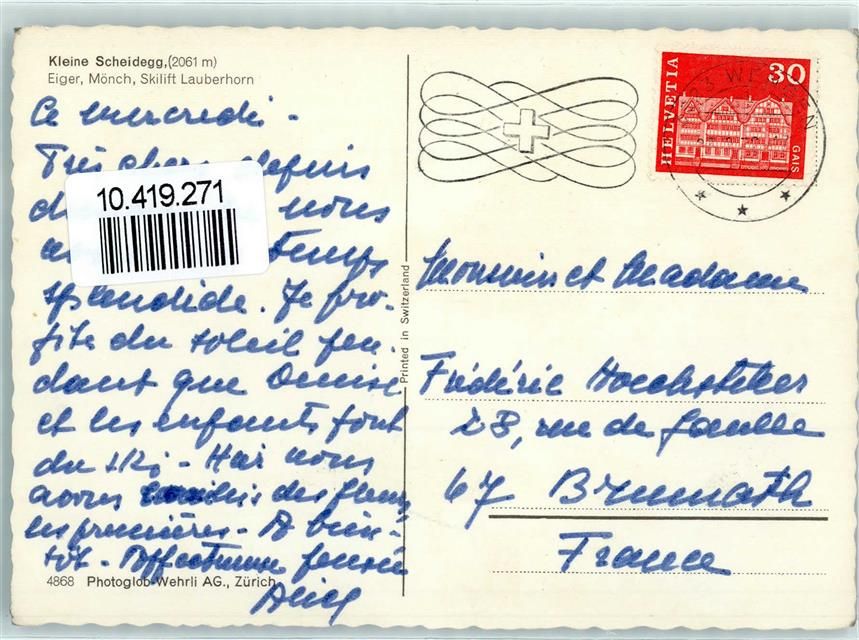 Kleine Scheidegg,(2061 m)
Eiger, Mönch, Skilift Lauberhorn
Ce mercredi -
Très chers, depuis
nous
temps
splendide. Je pro-
fite du soleil pen-
dant que Denise
et les enfants font
du ski - Hier nous
avons des fleurs
les premières - A bien-
tôt - Affectueuse pensée
10.419.271
4868 Photoglob-Wehrli AG., Zürich
Printed in Switzerland
HELVETIA
30
GAIS
Monsieur et Madame
Frédéric Hoechstetter
28, rue de Gaulle
67 Brumath
France